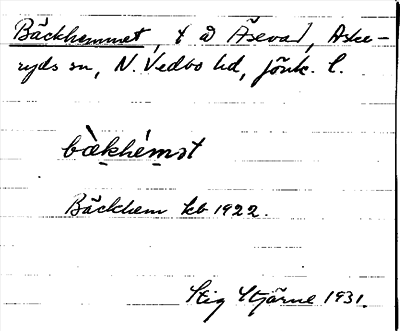 Bäckhemmet, t å Åsevad, Aske-
ryds sn, N. Vedbo hd, Jönk. l.
bɛ̀khémət
Bäckhem kb 1922.
Stig Stjärne 1931.